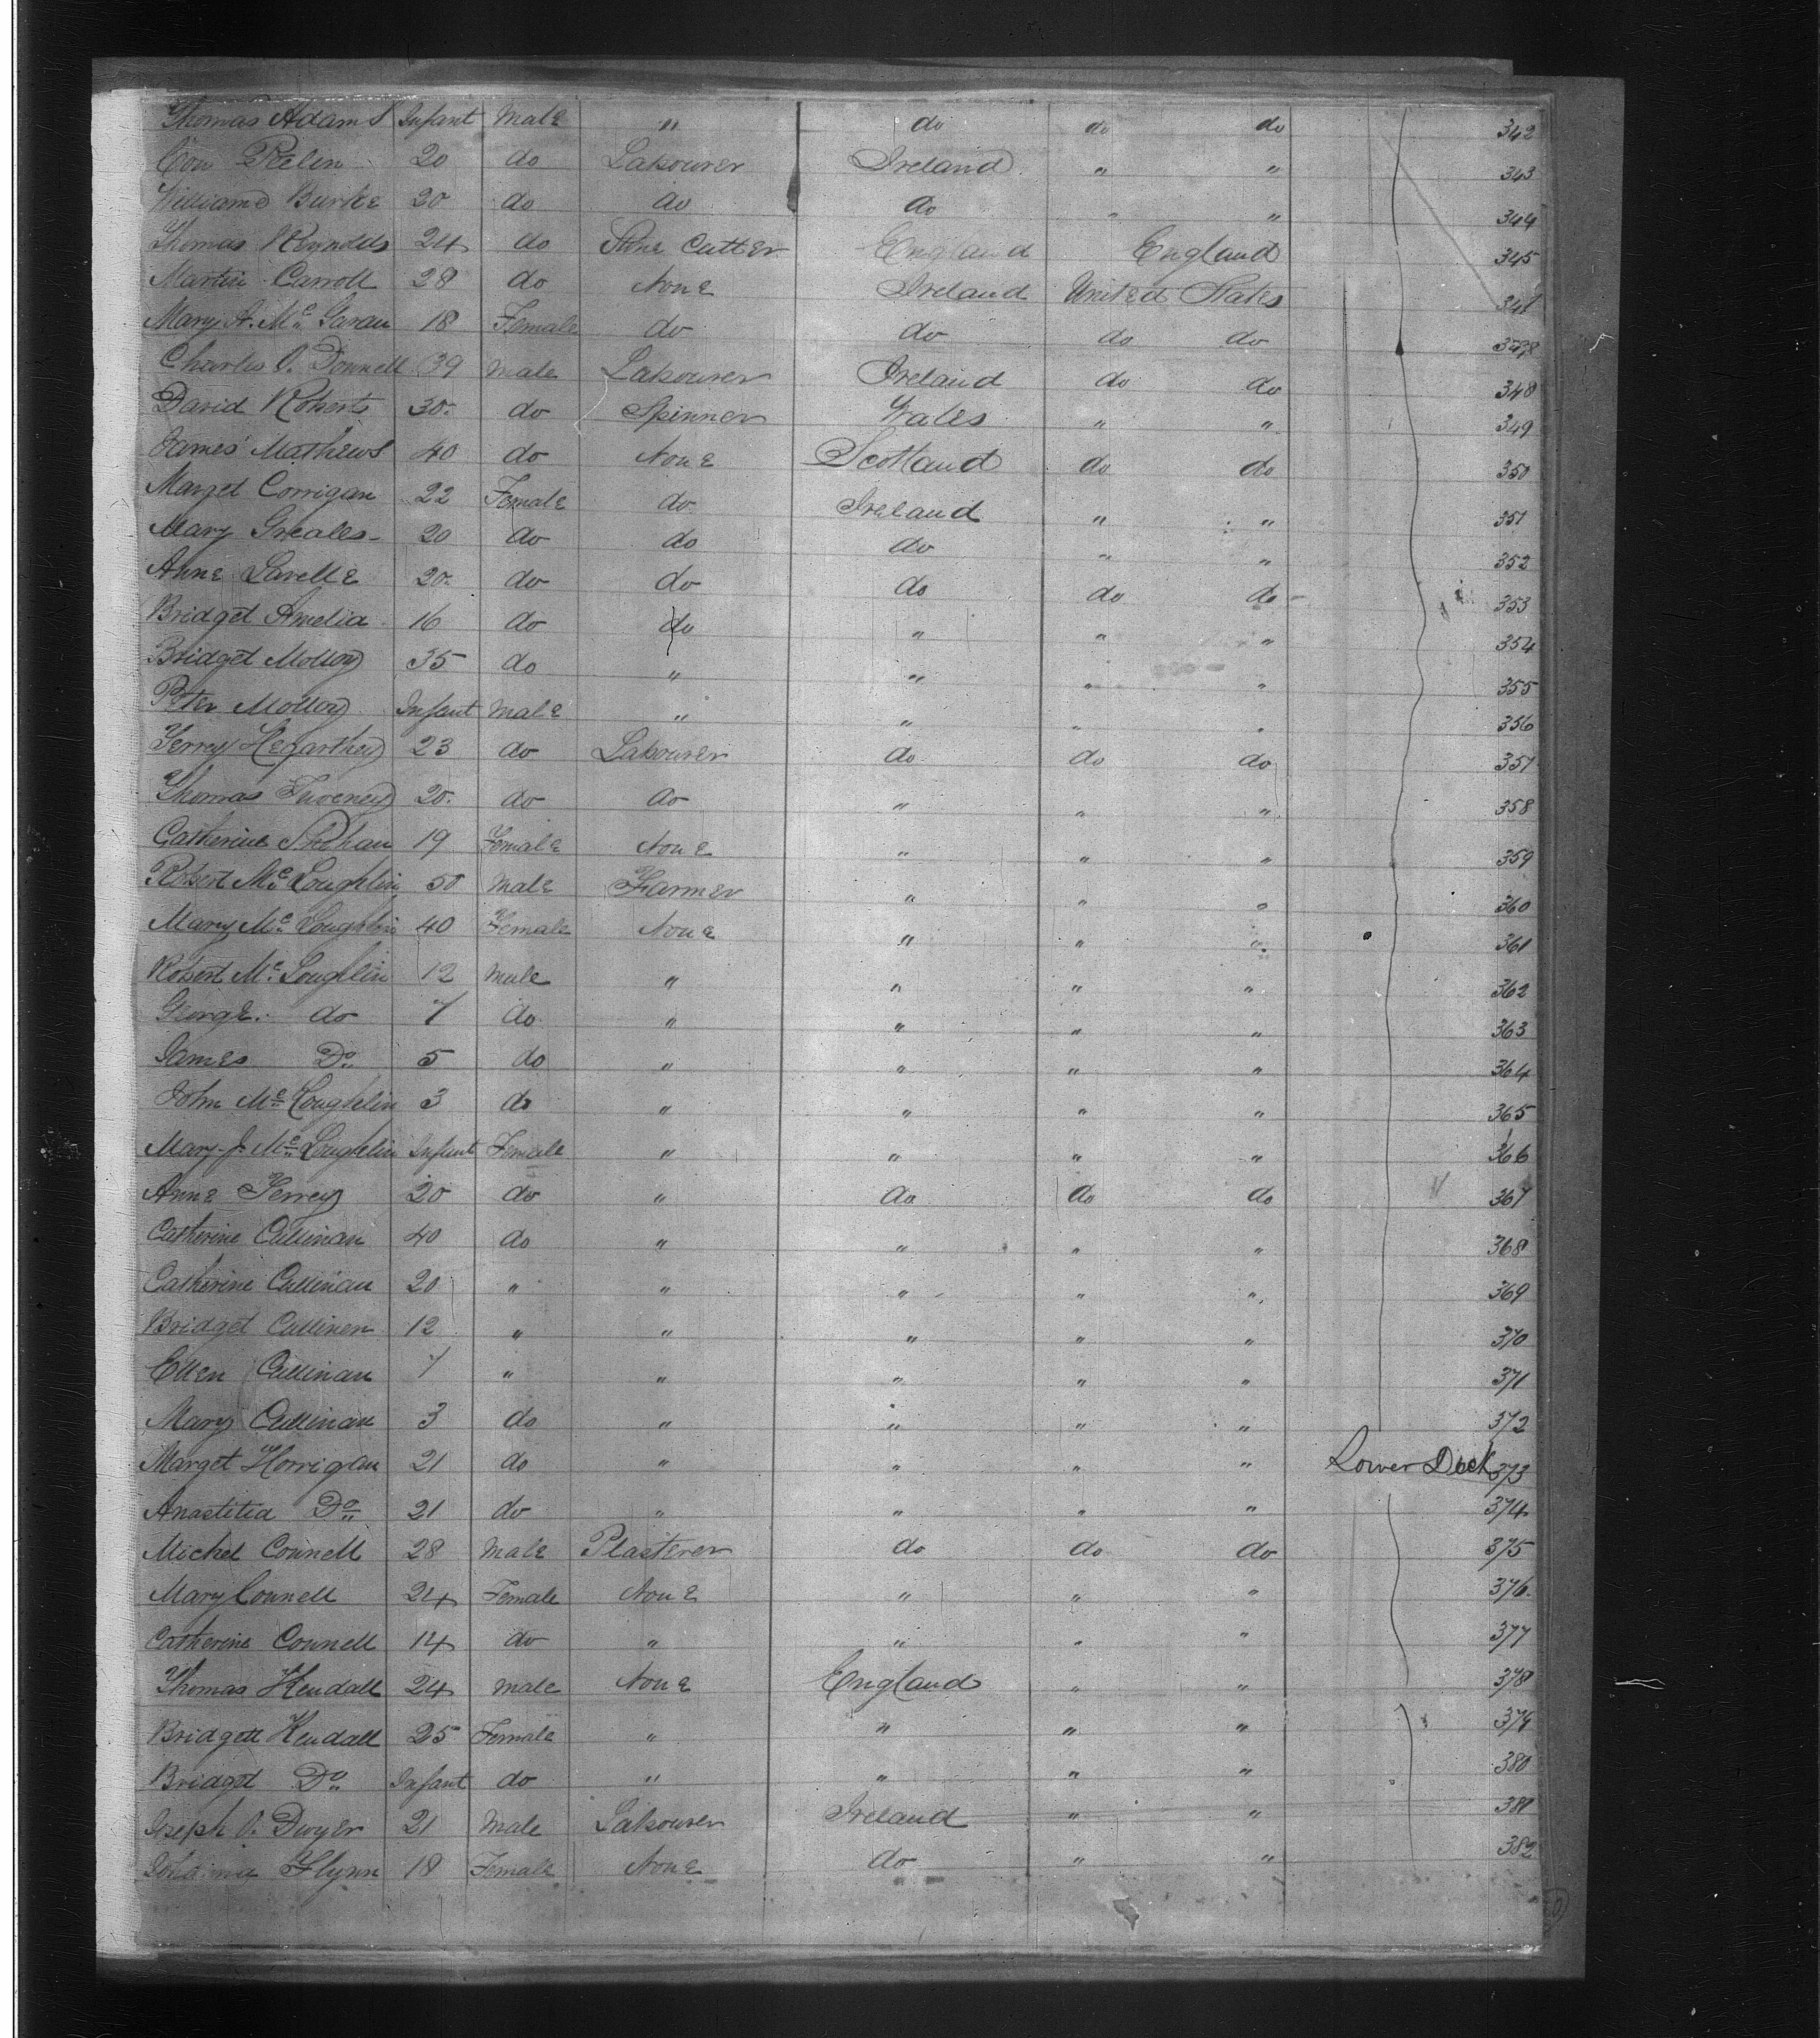 Thomas Adams Infant Male " do do do 342
Con 20 do Labourer Ireland " " 343
William Burke 20 do do do " " 344
Thomas Reynolds 24 do Stone Cutter England England 345
Martin Carroll 28 do None Ireland United States
Mary A. Mc Garau 18 Female do do do do
Charles O. Donnell 39 Male Labourer Ireland do do 348
David Roberts 30 do Spinner Wales " " 349
James Mathews 40 do None Scotland do do 350
Marget Corrigan 22 Female do Ireland " " 351
Mary Greales 20 do do do " " 352
Anne Lavelle 20 do do do do do 353
Bridget Amelia 16 do do " " " 354
Bridget Molloy 35 do " " " " 355
Peter Molloy Infant Male " " " " 356
Terrey Hegarthey 23 do Labourer do do do 357
Thomas 20 do do " " " 358
Catherine 19 Female None " " " 359
Robert Mc Loughlin 50 Male Farmer " " " 360
Mary Mc Loughlin 40 Female None " " " 361
Robert Mc Loughlin 12 Male " " " " 362
George do 7 do " " " " 363
James Do 5 do " " " " 364
John Mc Loughlin 3 do " " " " 365
Mary J. Mc Loughlin Infant Female " " " " 366
Anne Terrey 20 do " do do do 367
Catherine Cullinan 40 do " " " " 368
Catherine Cullinan 20 " " " " " 369
Bridget Cullinen 12 " " " " " 370
Ellen Cullinan 7 " " " " " 371
Mary Cullinan 3 do " " " " 372
Marget Horrigan 21 do " " " " Lower Deck 373
Anastitia Do 21 do " " " " 374
Michel Connell 28 Male Plasterer do do do 375
Mary Connell 24 Female None " " " 376
Catherine Connell 14 do " " " " 377
Thomas Kendall 24 Male None England " " 378
Bridgett Kendall 25 Female " " " " 379
Bridget Do Infant do " " " " 380
Joseph O. Dwyer 21 Male Labourer Ireland " " 381
Johanna Flynn 18 Female None do " " 382